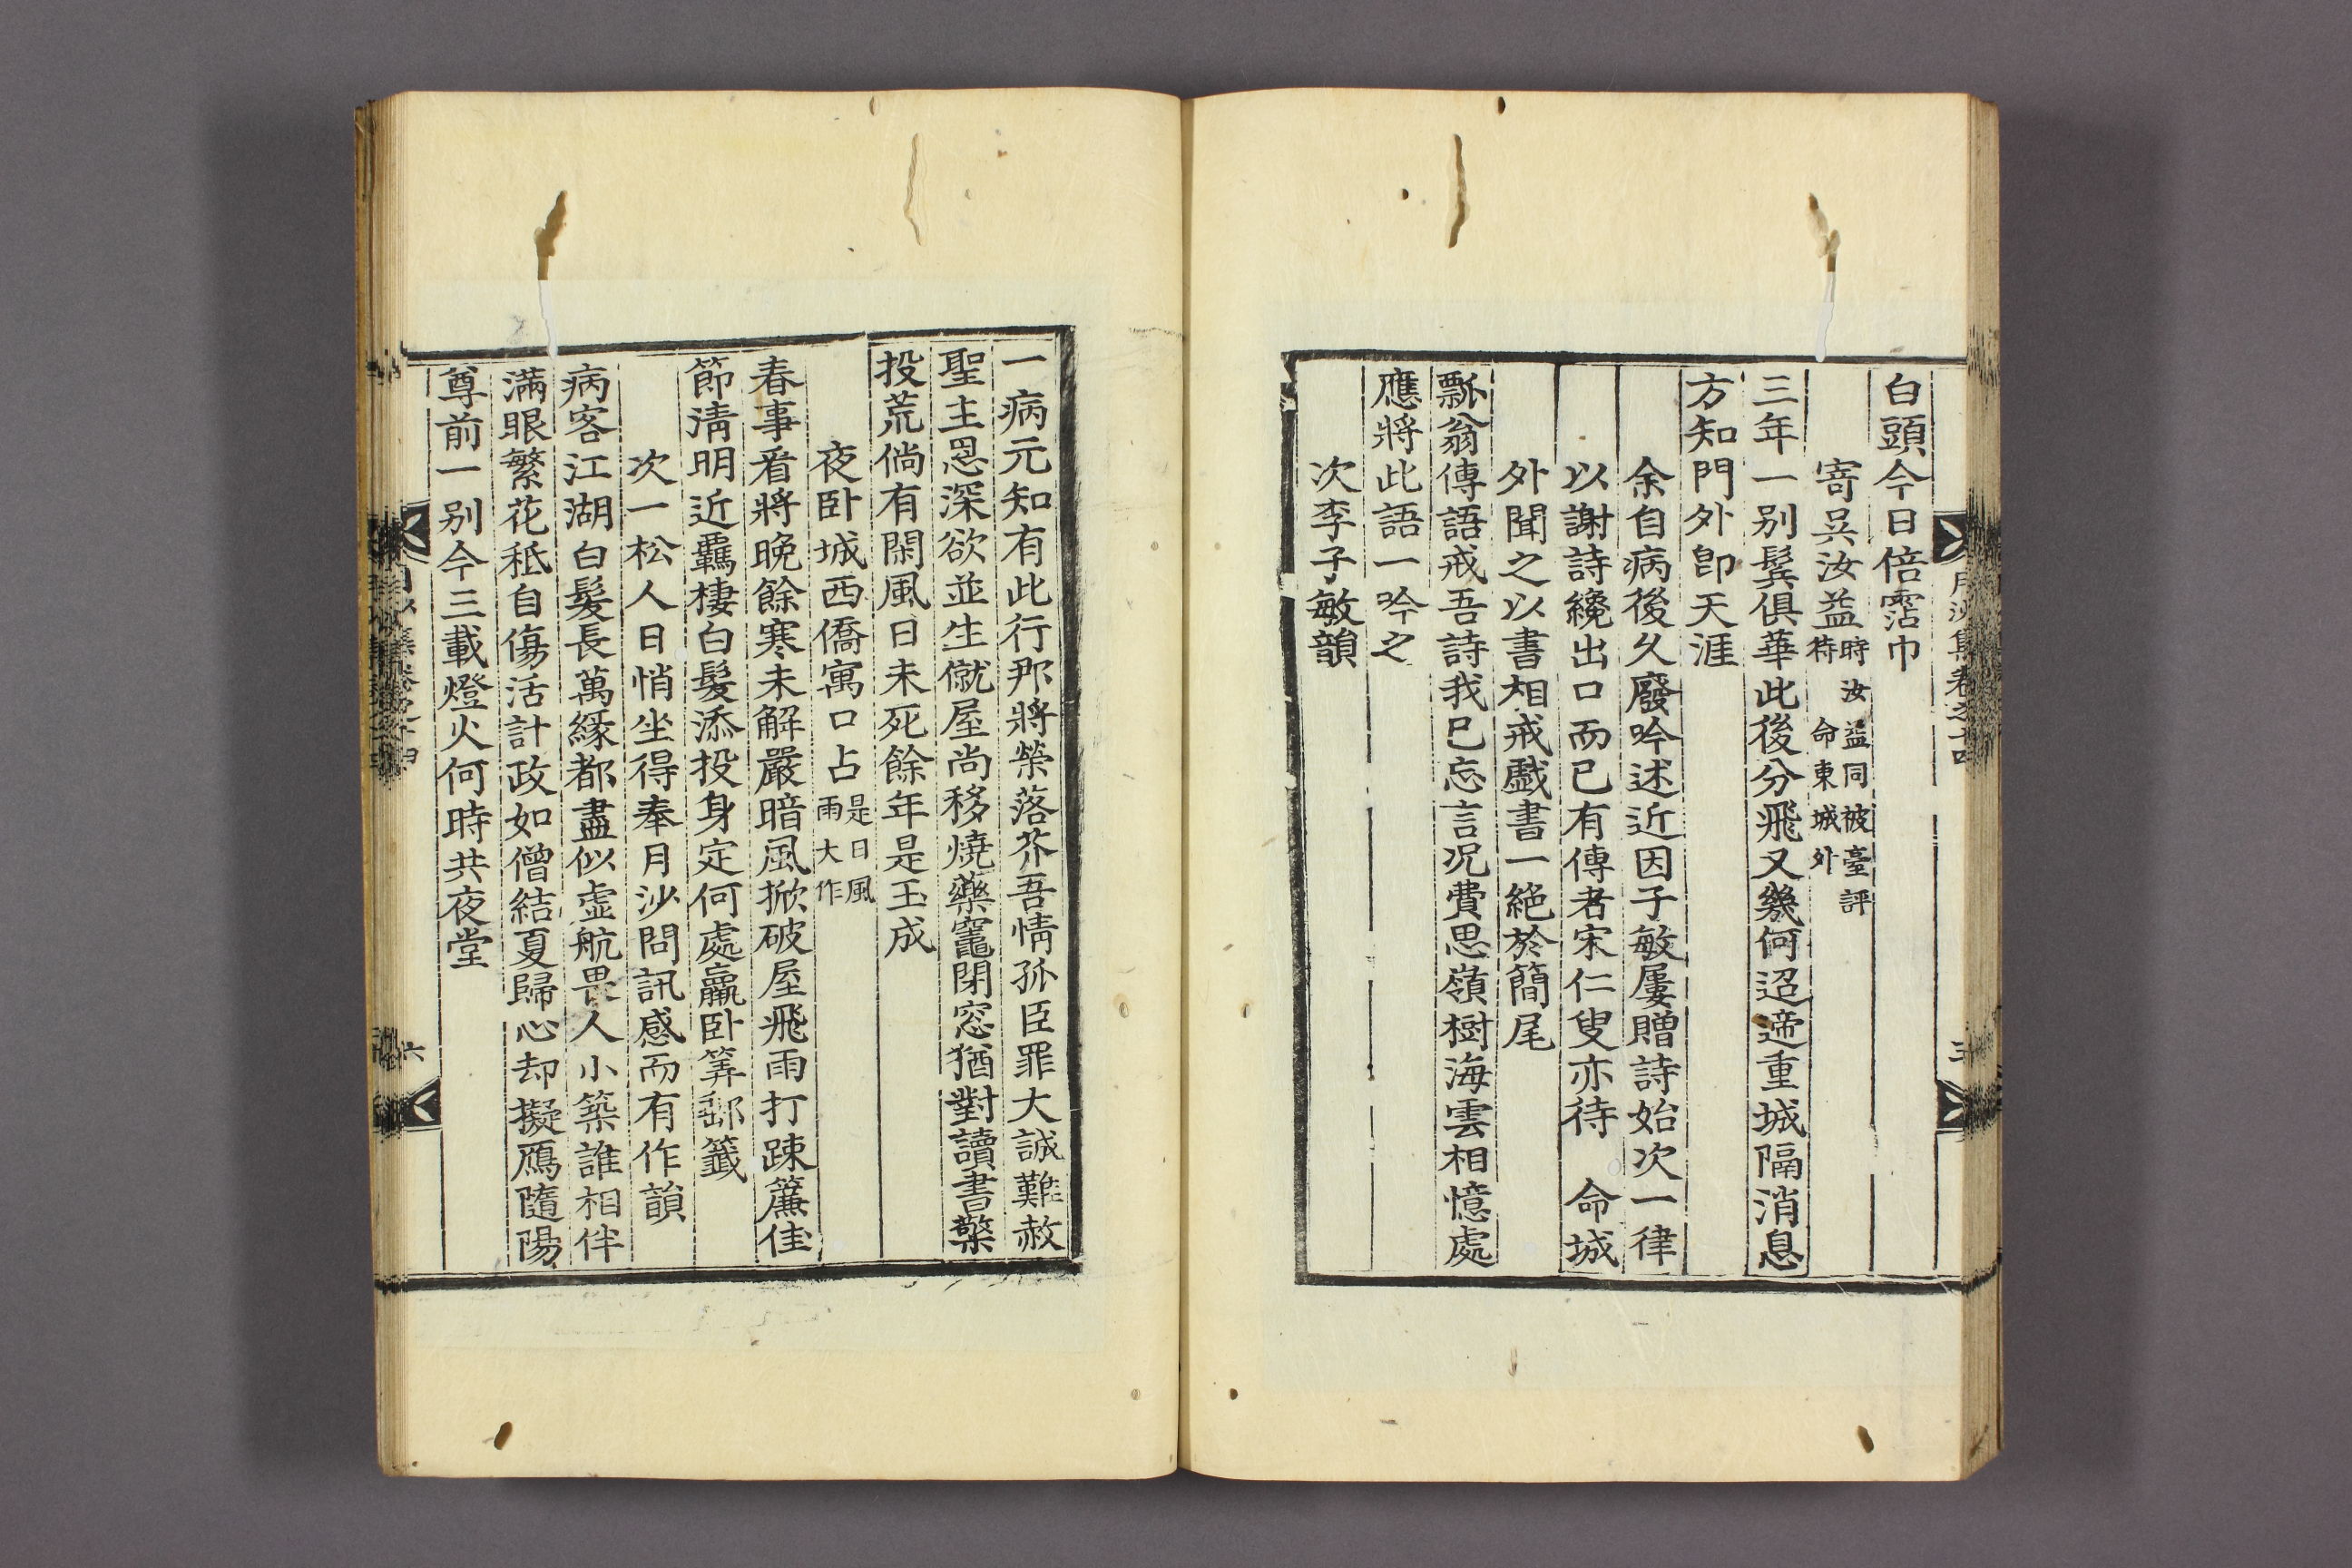 白頭今日倍霑巾
寄吳汝益時汝益同被臺評待命東城外
三年一別鬂俱華此後分飛又幾何迢遞重城隔消息
方知門外卽天涯
余自病後久廢吟述近因子敏屢贈詩始次一律
以謝詩纔出口而已有傳者宋仁叟亦待 命城
外聞之以書相戒戱書一絶於簡尾
瓢翁傳語戒吾詩我已忘言况費思嶺樹海雲相憶處
應將此語一吟之
次李子敏韻
一病元知有此行那將榮落芥吾情孤臣罪大誠難赦
聖主恩深欲並生僦屋尚移燒藥竈閉窓猶對讀書檠
投荒倘有閑風日未死餘年是玉成
夜卧城西僑寓口占是日風雨大作
春事看將晩餘寒未解嚴暗風掀破屋飛雨打踈簾佳
節淸明近羈棲白髮添投身定何處羸卧筭郵籤
次一松人日悄坐得奉月沙問訊感而有作韻
病客江湖白髮長萬緣都盡似虛航畏人小築誰相伴
滿眼繁花秪自傷活計政如僧結夏歸心却擬鴈隨陽
尊前一别今三載燈火何時共夜堂
月沙集卷之十四
六